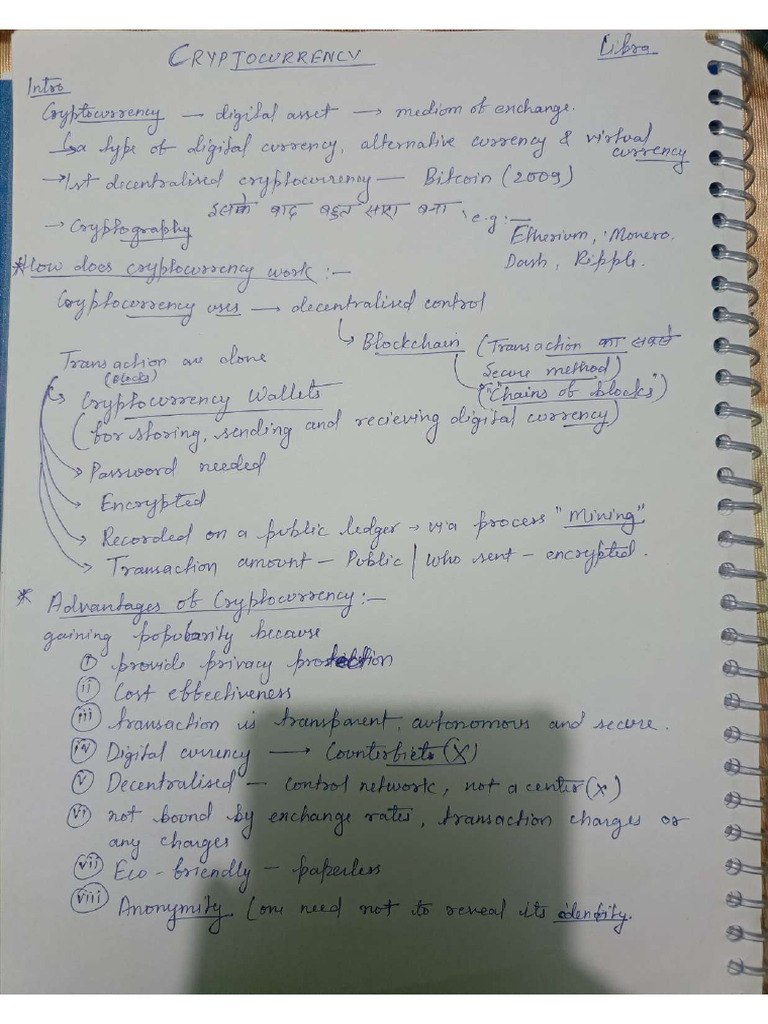 CRYPTOCURRENCY
Libra
Intro
Cryptocurrency → digital asset → mediom of exchange.
↳ a type of digital currency, alternative currency & virtual
currency
→ 1st decentralised cryptocurrency — Bitcoin (2009)
इसके बाद बहुत सारा बना
→ Cryptography
e.g:-
Etherium, Monero.
Dash, Ripple.
* How does cryptocurrency work :-
Cryptocurrency uses → decentralised control
↳ Blockchain (Transaction का सबसे
Secure method)
("Chains of blocks")
Transaction are done
(Blocks)
↳ Cryptocurrency Wallets
(for storing, sending and recieving digital currency)
→ Password needed
→ Encrypted
→ Recorded on a public ledger → via process "Mining"
→ Transaction amount — Public | who sent — encrypted.
* Advantages of Cryptocurrency :-
gaining popularity because
(i) provide privacy protection
(ii) Cost effectiveness
(iii) transaction is transparent, autonomous and secure.
(iv) Digital currency → Counterfiets (X)
(v) Decentralised — control network, not a center (X)
(vi) not bound by exchange rates, transaction charges or
any charges
(vii) Eco-friendly — paperless
(viii) Anonymity (one need not to reveal its identity.